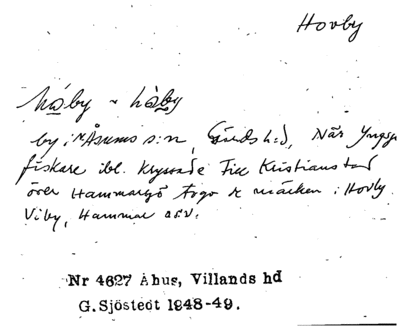 Hovby
håby ~ håby
by i N. Åsums s:n, Gärds h:d, När Yngsjö
fiskare ibl. kryssade till Kristianstad
över Hammarsjö togo de märken i Hovby
Viby, Hammar osv.
Nr 4627 Åhus, Villands hd
G.Sjöstedt 1948-49.